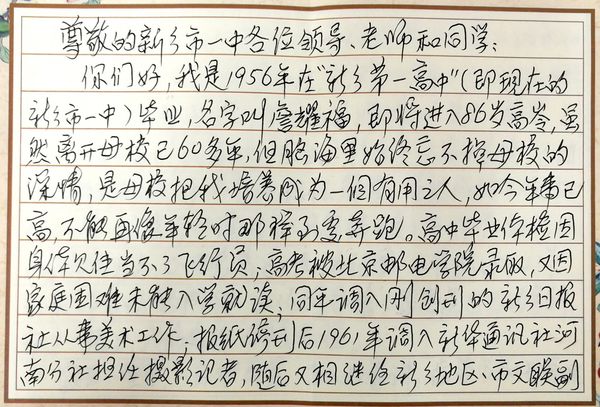 尊敬的新乡市一中各位领导、老师和同学:
你们好,我是1956年在"新乡第一高中"(即现在的
新乡市一中)毕业,名字叫詹耀福,即将进入86岁高岑,虽
然离开母校已60多年,但脑海里始终忘不掉母校的
深情,是母校把我培养成为一個有用之人,如今年事已
高,不能再像年轻时那样到处奔跑。高中毕业体检因
身体欠佳当不了飞行员;高考被北京邮电学院录取,又因
家庭困难未能入学就读,同年调入刚创刊的新乡日报
社从事美术工作;报纸停刊后1961年调入新华通讯社河
南分社担任摄影记者,随后又相继任新乡地区、市文联副